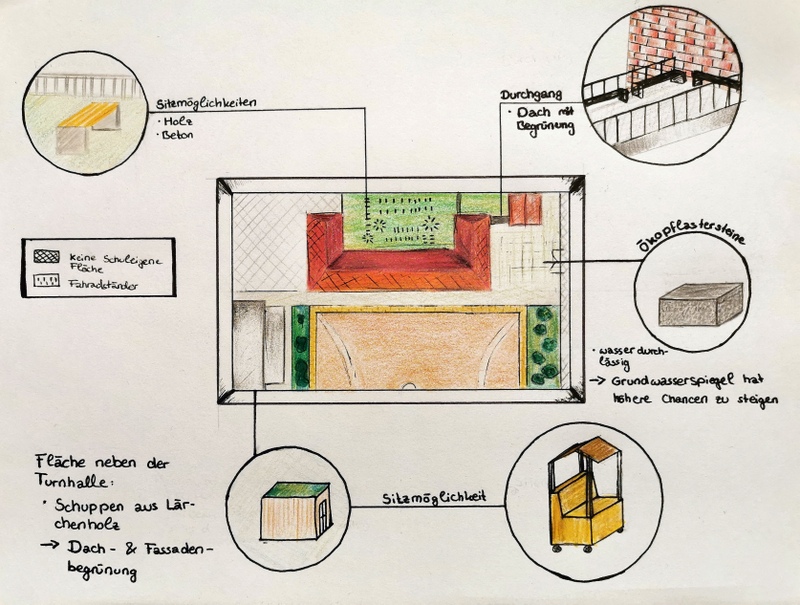 Sitzmöglichkeiten
· Holz
· Beton
Durchgang
· Dach mit
Begrünung
Ökopflastersteine
Keine Schuleigene
Fläche
Fahradständer
· wasserdurch-
lässig
→ Grundwasserspiegel hat
höhere Chancen zu steigen
Fläche neben der
Turnhalle:
· Schuppen aus Lär-
chenholz
→ Dach- & Fassaden-
begrünung
Sitzmöglichkeit